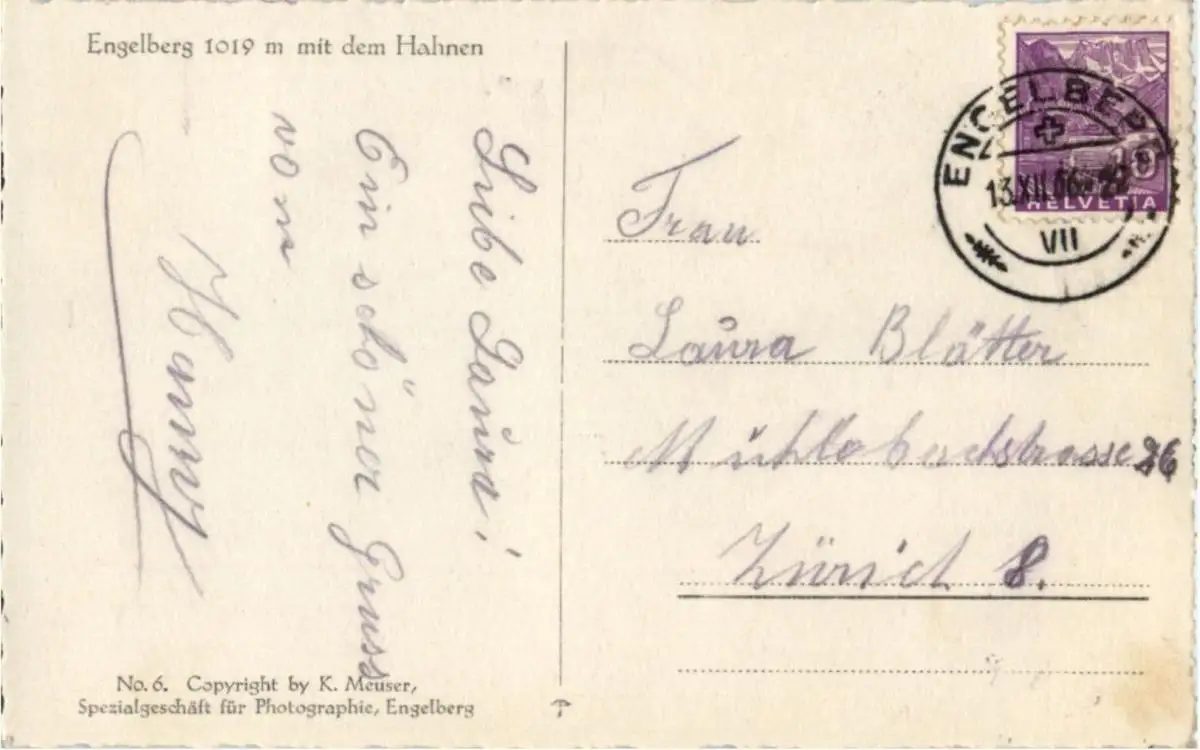 Engelberg 1019 m mit dem Hahnen
Liebe Laura!
Ein schöner Gruss
vom
Hanny
No. 6. Copyright by K. Meuser,
Spezialgeschäft für Photographie, Engelberg
ENGELBERG
13.XII.
VII
10
HELVETIA
Frau
Laura Blätter
Mühlebachstrasse 26
Zürich 8.